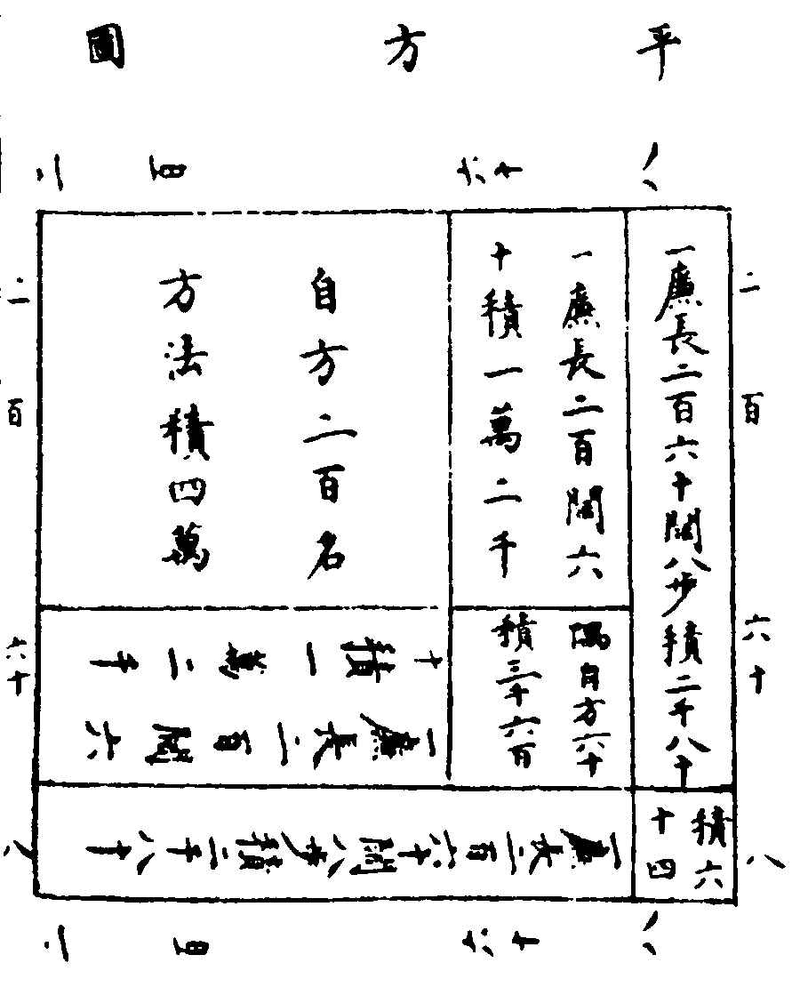 平方圖
二百六十八
二百六十八
一廉長二百六十闊八步積二千八十
一廉長二百闊六
十積一萬二千
自方二百名
方法積四萬
二百六十八
隅自方六十
積三千六百
一廉長二百闊六
十積一萬二千
積六
十四
一廉長二百六十闊八步積二千八十
二百六十八